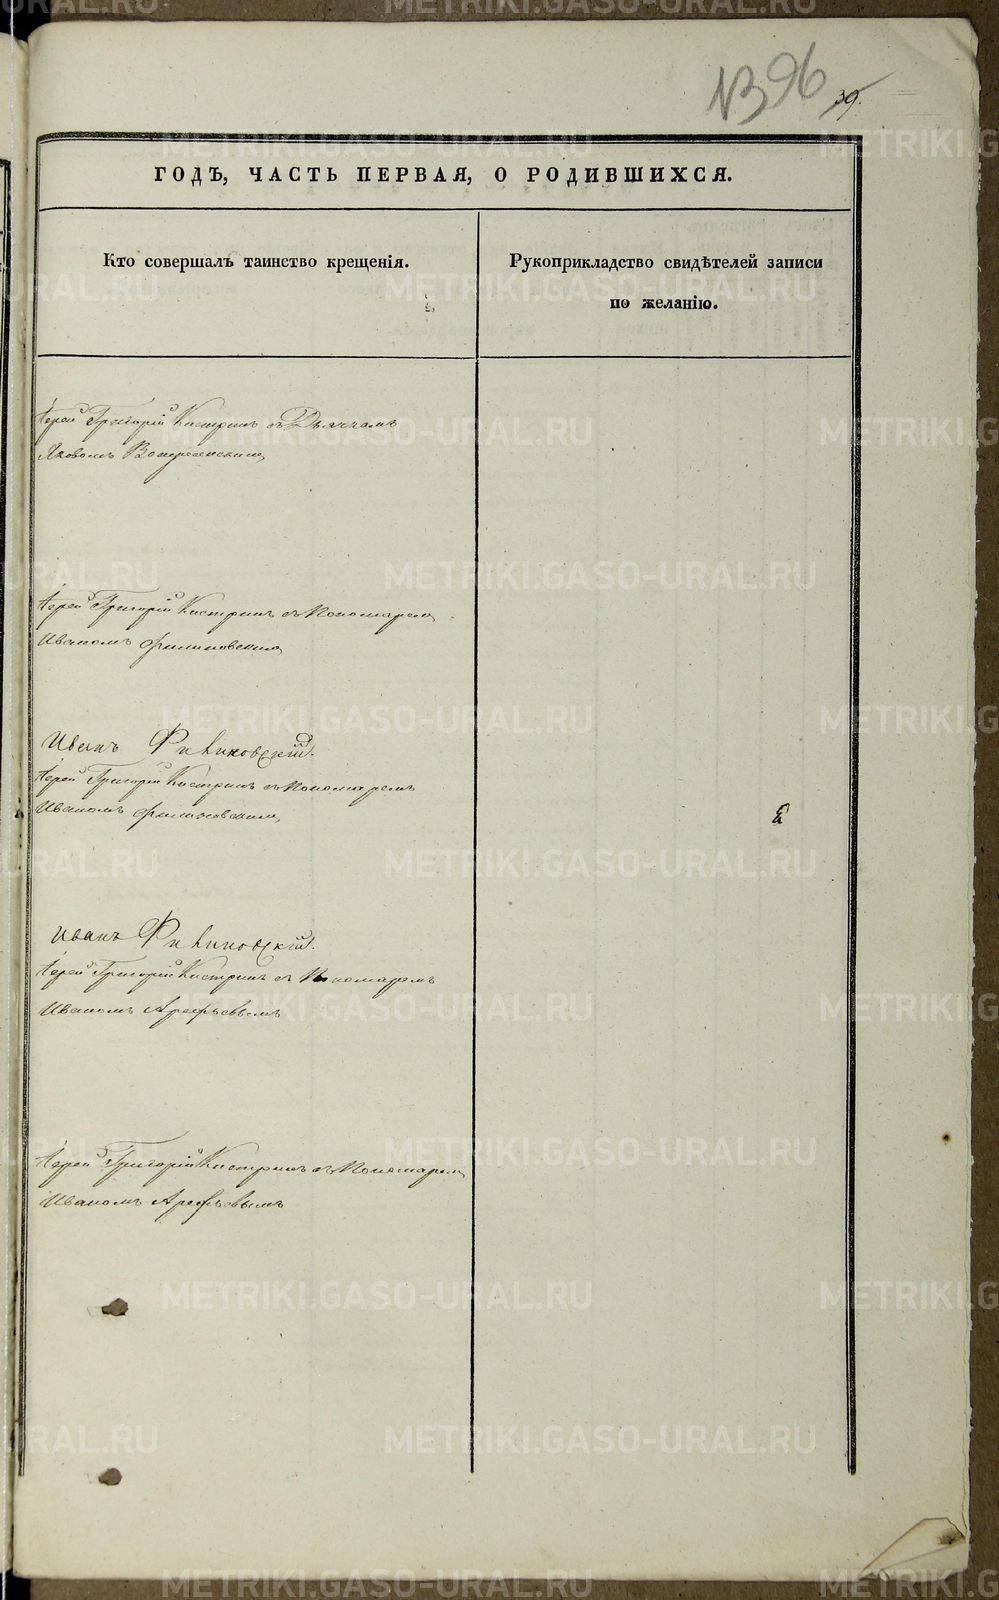 № 396 39.
ГОДЪ, ЧАСТЬ ПЕРВАЯ, О РОДИВШИХСЯ.
Кто совершалъ таинство крещенія.
Рукоприкладство свидѣтелей записи
по желанію.
Іерей Григорій Кистринъ съ Дьячкомъ
Яковомъ Воскресенскимъ
Іерей Григорій Кистринъ съ Пономаремъ
Иваномъ Филиповскимъ
Иванъ Филиповскій.
Іерей Григорій Кистринъ съ Пономаремъ
Иваномъ Филиповскимъ
Иванъ Филиповскій.
Іерей Григорій Кистринъ съ Пономаремъ
Иваномъ Арефьевымъ
Іерей Григорій Кистринъ съ Пономаремъ
Иваномъ Арефьевымъ
METRIKI.GASO-URAL.RU